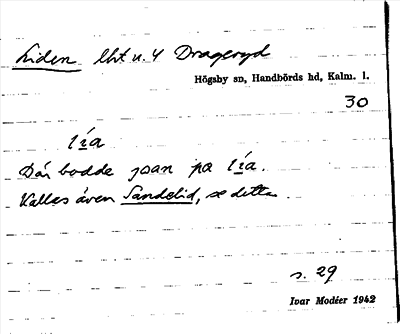 Liden lht u. 4 Drageryd
Högsby sn, Handbörds hd, Kalm. l.
30
lía
Där bodde joan pa lía.
Kallas även Sandelid, se detta.
s. 29
Ivar Modéer 1942